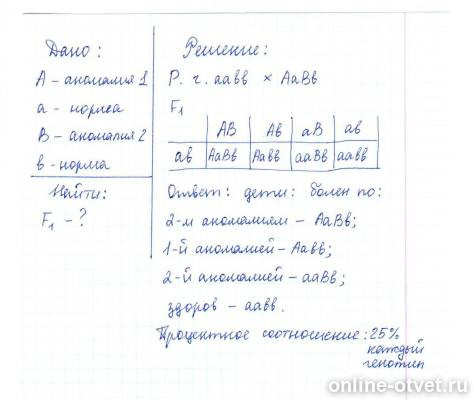 Дано:
А - аномалия 1
а - норма
В - аномалия 2
в - норма
Найти:
F₁ - ?
Решение:
Р. г. аавв × АаВв
F₁
АВ Ав аВ ав
ав АаВв Аавв ааВв аавв
Ответ: дети: болен по:
2-м аномалиям - АаВв;
1-й аномалией - Аавв;
2-й аномалией - ааВв;
здоров - аавв.
Процентное соотношение: 25%
каждый
генотип
online-otvet.ru